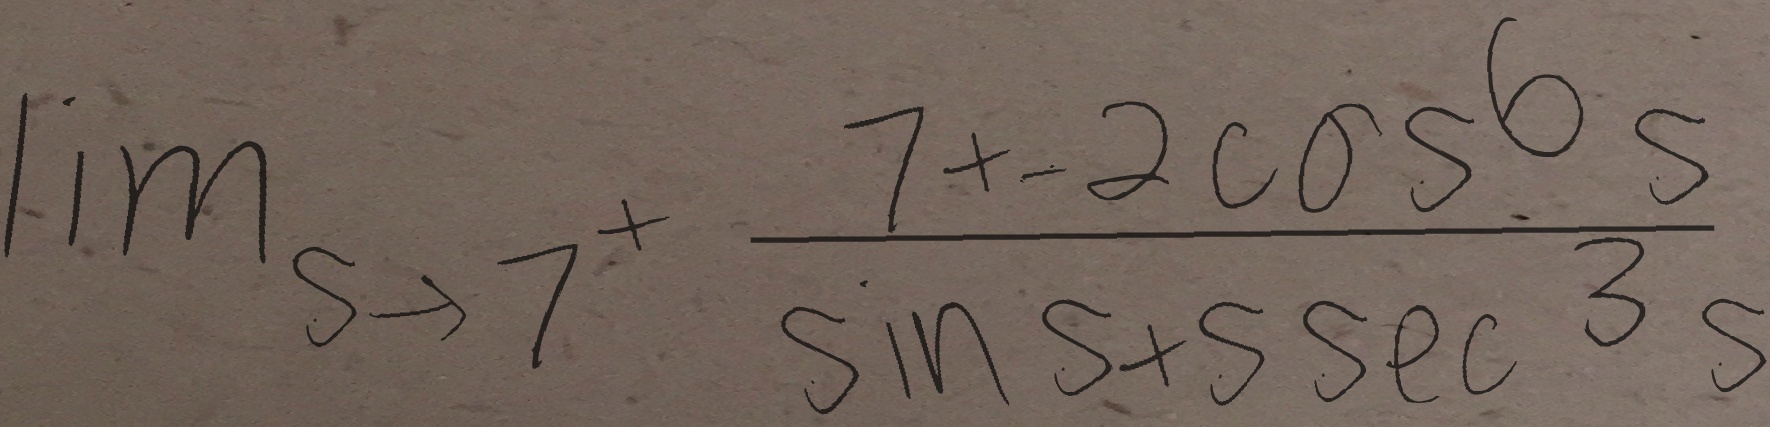 \lim_{s \to 7^{+}} \frac{7 + -2 \cos^{6} s}{\sin s + s \sec^{3} s}